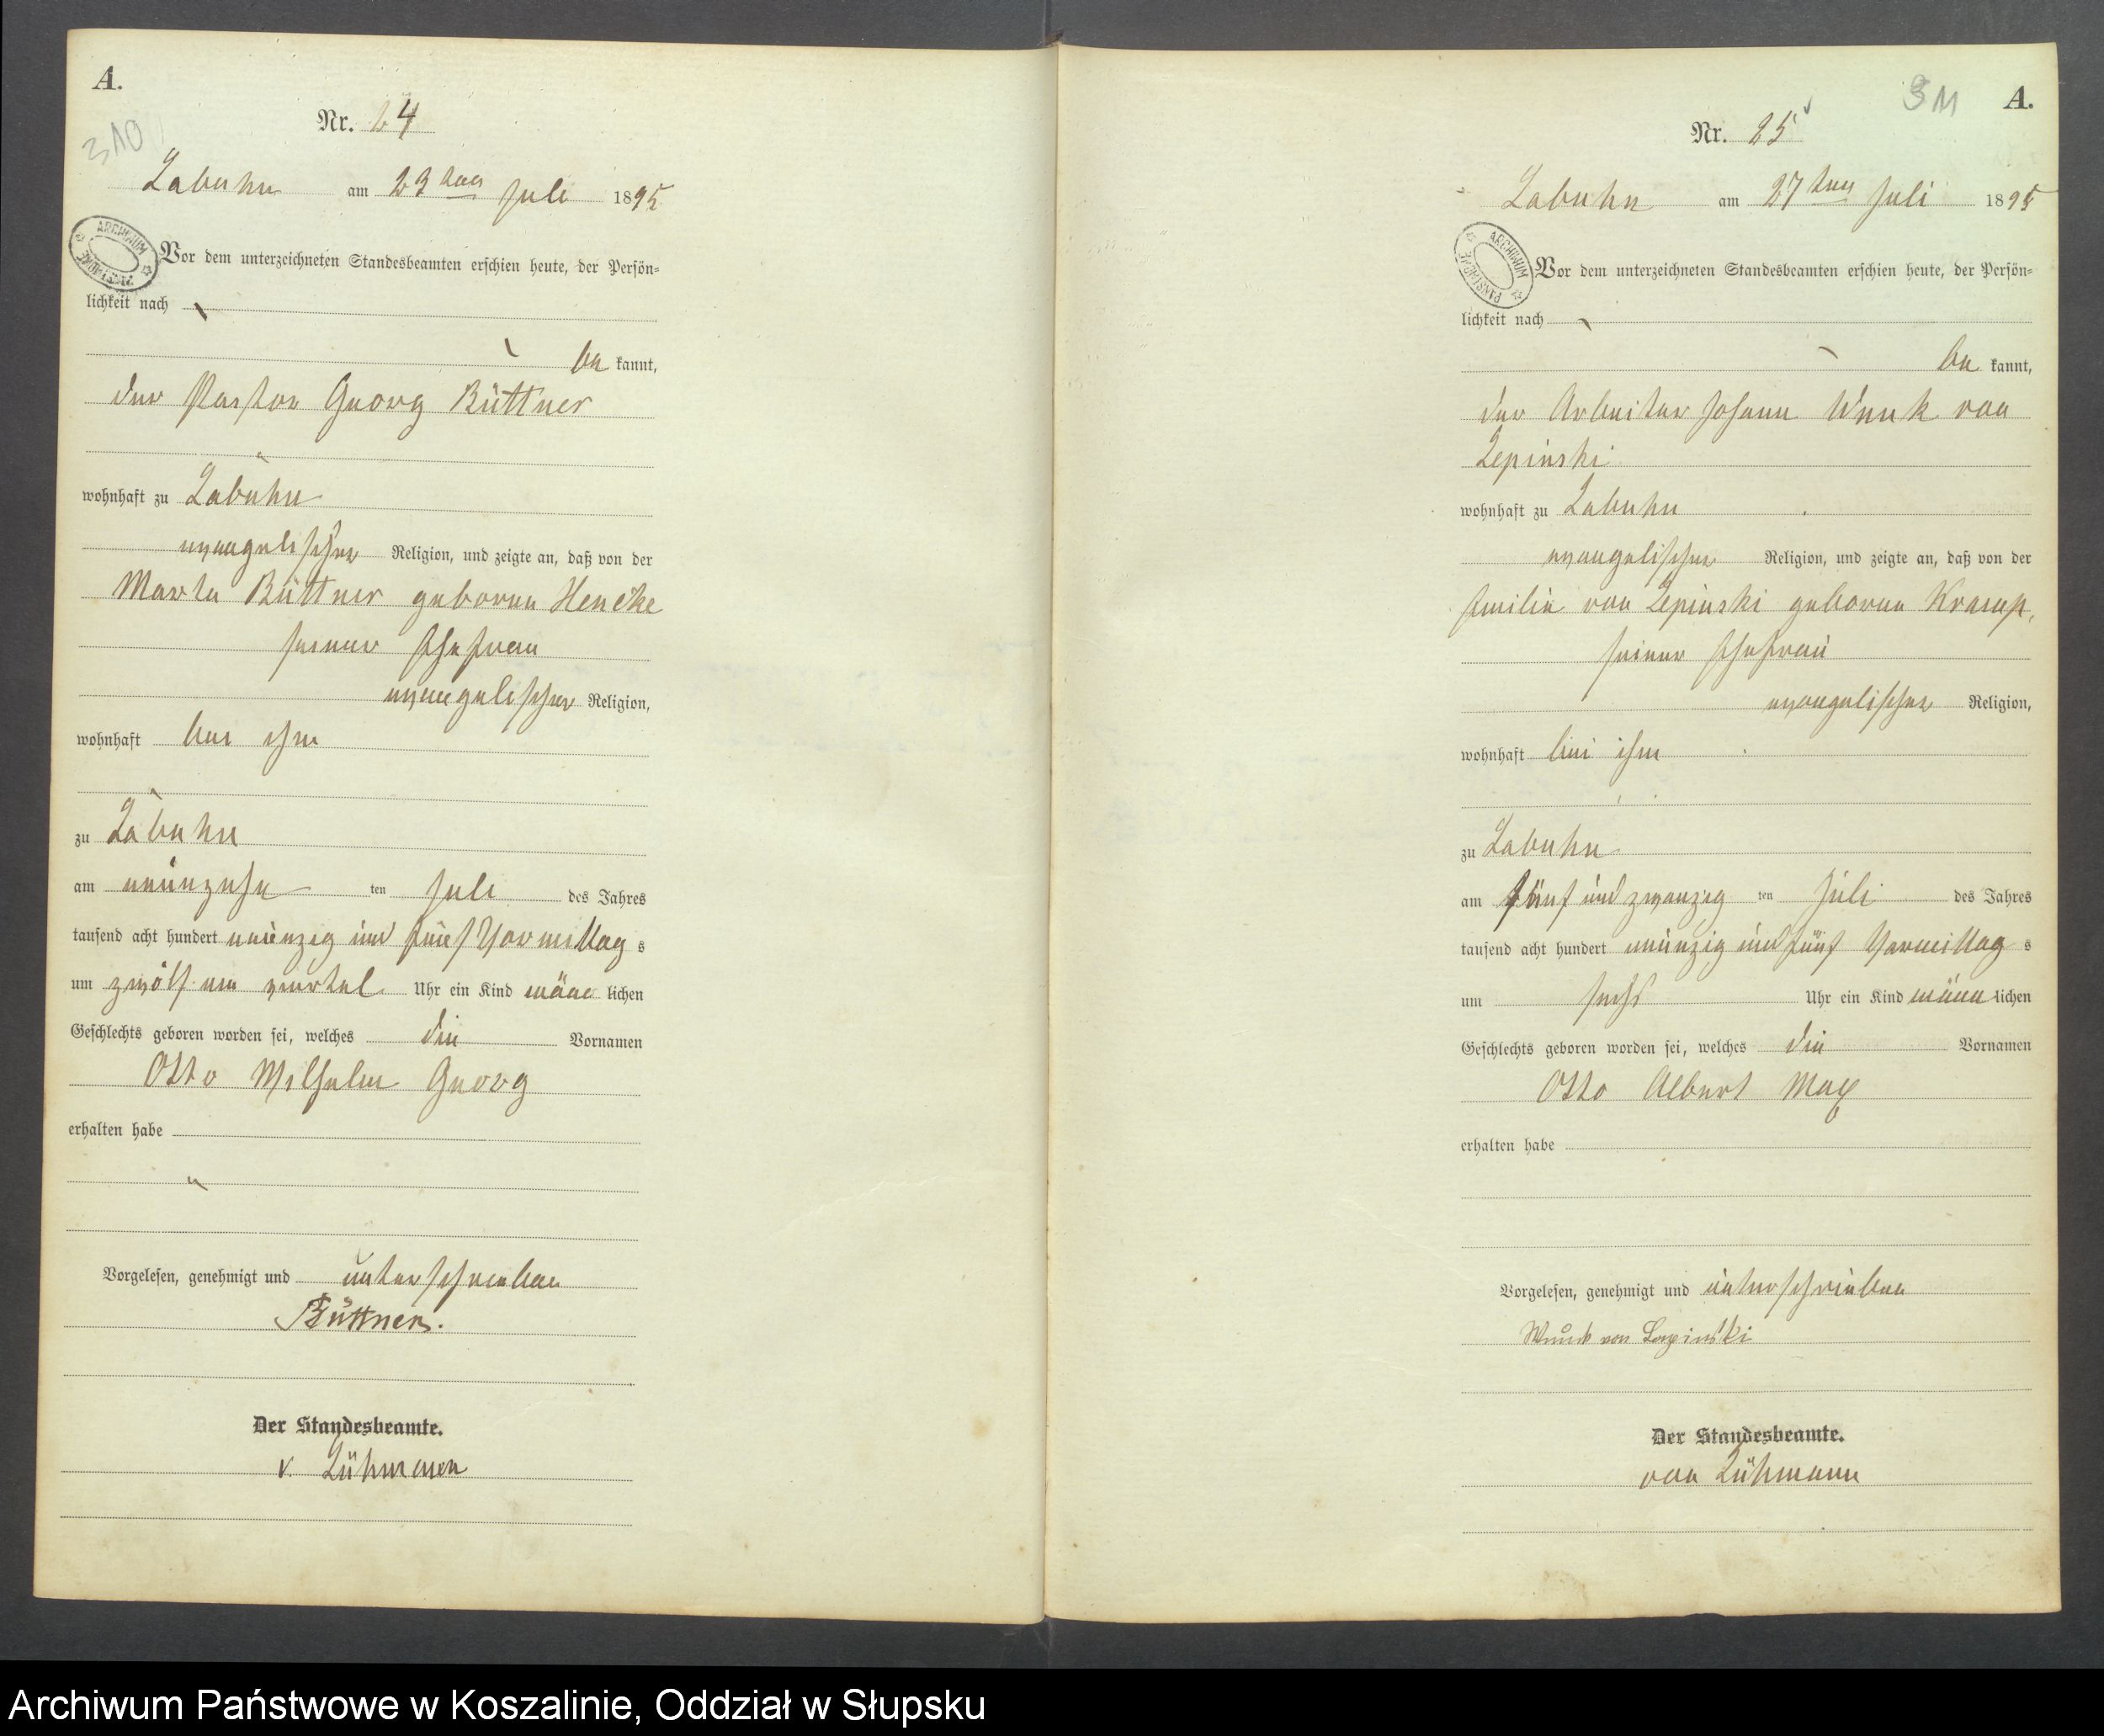 A.
310
Nr. 24
Labuhn am 23ten Juli 1895
ARCHIWUM PAŃSTWOWE
Vor dem unterzeichneten Standesbeamten erschien heute, der Persön=
lichkeit nach
be kannt,
der Pastor Georg Büttner
wohnhaft zu Labuhn
evangelischer Religion, und zeigte an, daß von der
Marta Büttner geborene Hencke
seiner Ehefrau
evangelischer Religion,
wohnhaft bei ihm
zu Labuhn
am neunzehn ten Juli des Jahres
tausend acht hundert neunzig und fünf Vormittag s
um zwölf ein viertel Uhr ein Kind männ lichen
Geschlechts geboren worden sei, welches die Vornamen
Otto Wilhelm Georg
erhalten habe
Vorgelesen, genehmigt und unterschrieben
Büttner.
Der Standesbeamte.
v. Lühmann
311
A.
Nr. 25
Labuhn am 27ten Juli 1895
ARCHIWUM PAŃSTWOWE
Vor dem unterzeichneten Standesbeamten erschien heute, der Persön=
lichkeit nach
be kannt,
der Arbeiter Johann Wnuk von
Lepinski
wohnhaft zu Labuhn
evangelischer Religion, und zeigte an, daß von der
Emilie von Lepinski geborene
seiner Ehefrau
evangelischer Religion,
wohnhaft bei ihm
zu Labuhn
am fünf und zwanzig ten Juli des Jahres
tausend acht hundert neunzig und fünf Vormittag s
um sechs Uhr ein Kind männ lichen
Geschlechts geboren worden sei, welches die Vornamen
Otto Albert Max
erhalten habe
Vorgelesen, genehmigt und unterschrieben
Wnuk von Lepinski
Der Standesbeamte.
von Lühmann
Archiwum Państwowe w Koszalinie, Oddział w Słupsku